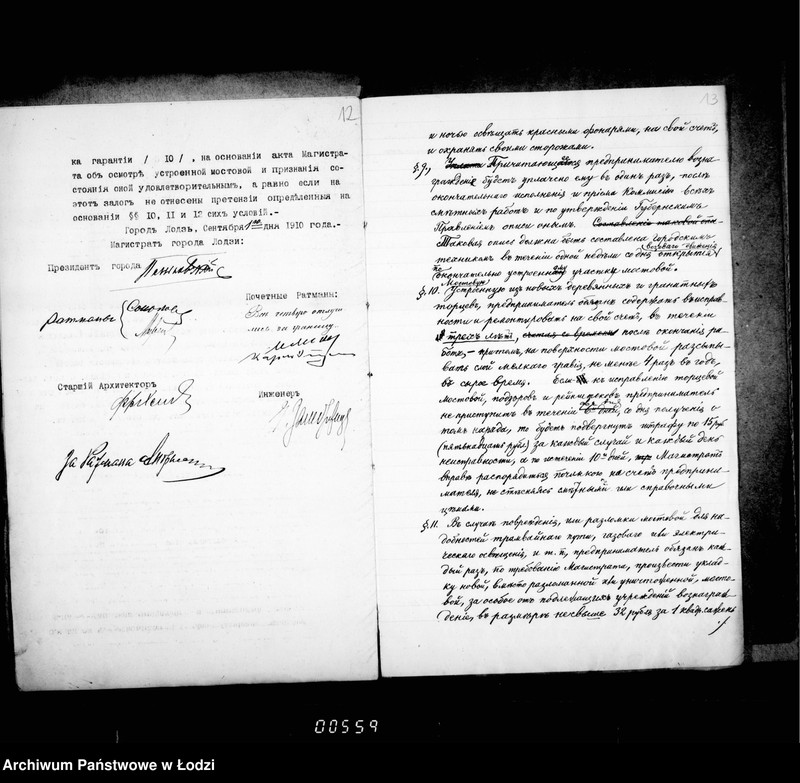 12
ка гарантіи / 10 /, на основаніи акта Магистра-
та объ осмотрѣ устроенной мостовой и признанія со-
стоянія оной удовлетворительнымъ, а равно если на
этотъ залогъ не отнесены претензіи опредѣленныя на
основаніи §§ 10, 11 и 12 сихъ условій.-
Городъ Лодзь, Сентября дня 1910 года.-
Магистратъ города Лодзи:
Президентъ города
Почетные Ратманы:
Ратманы
Всѣ четверо отлуч
лись за границу.
Старшій Архитекторъ
Инженеръ
За Ратмана
13
и ночью освѣщать красными фонарями, на свой счетъ,
и охранять своими сторожами.
§.9, Причитающееся предпринимателю возна
гражденіе будетъ уплачено ему въ одинъ разъ, послѣ
окончательнаго исполненія и пріема Комиссіею всѣхъ
смѣтныхъ работъ и по утвержденіи Губернскимъ
Правленіемъ описи онымъ. Составленіе таковой опи-
Таковая опись должна быть составлена городскимъ
техникомъ въ теченіи одной недѣли со дня открытія
по окончательно устроенному участку мостовой.
§.10. Мостовую Устроенную изъ новыхъ деревянныхъ и гранитныхъ
торцевъ, предприниматель обязанъ содержать въ исправ-
ности и ремонтировать на свой счетъ, въ теченіи
трехъ лѣтъ, считая со времени послѣ окончанія ра-
ботъ,- притомъ, на поверхности мостовой разсыпы-
вать слой мелкаго гравія, не менѣе 4 разъ въ годъ,
въ сырое время. Если къ исправленію торцевой
мостовой, подзоровъ и предприниматель
не приступитъ въ теченіи со дня полученія о
томъ наряда, то будетъ подвергнутъ штрафу по 15 руб
(пятьнадцать руб.) за каждый случай и каждый день
неисправности, а по истеченіи 10 дней, Магистратъ
вправѣ распорядиться починкою на счетъ предприни-
мателя, не стѣсняясь смѣтными или справочными
цѣнами.
§.11. Въ случаѣ поврежденія, или разломки мостовой для на-
добностей трамвайнаго пути, газоваго или электри-
ческаго освѣщенія, и т. п., предприниматель обязанъ каж-
дый разъ, по требованію Магистрата, произвести уклад-
ку новой, вмѣсто разломанной или уничтоженной, мосто-
вой, за особое отъ подлежащихъ учрежденій вознаграж-
деніе, въ размѣрѣ не свыше 32 рубль за 1 квадр. сажень
00559
Archiwum Państwowe w Łodzi